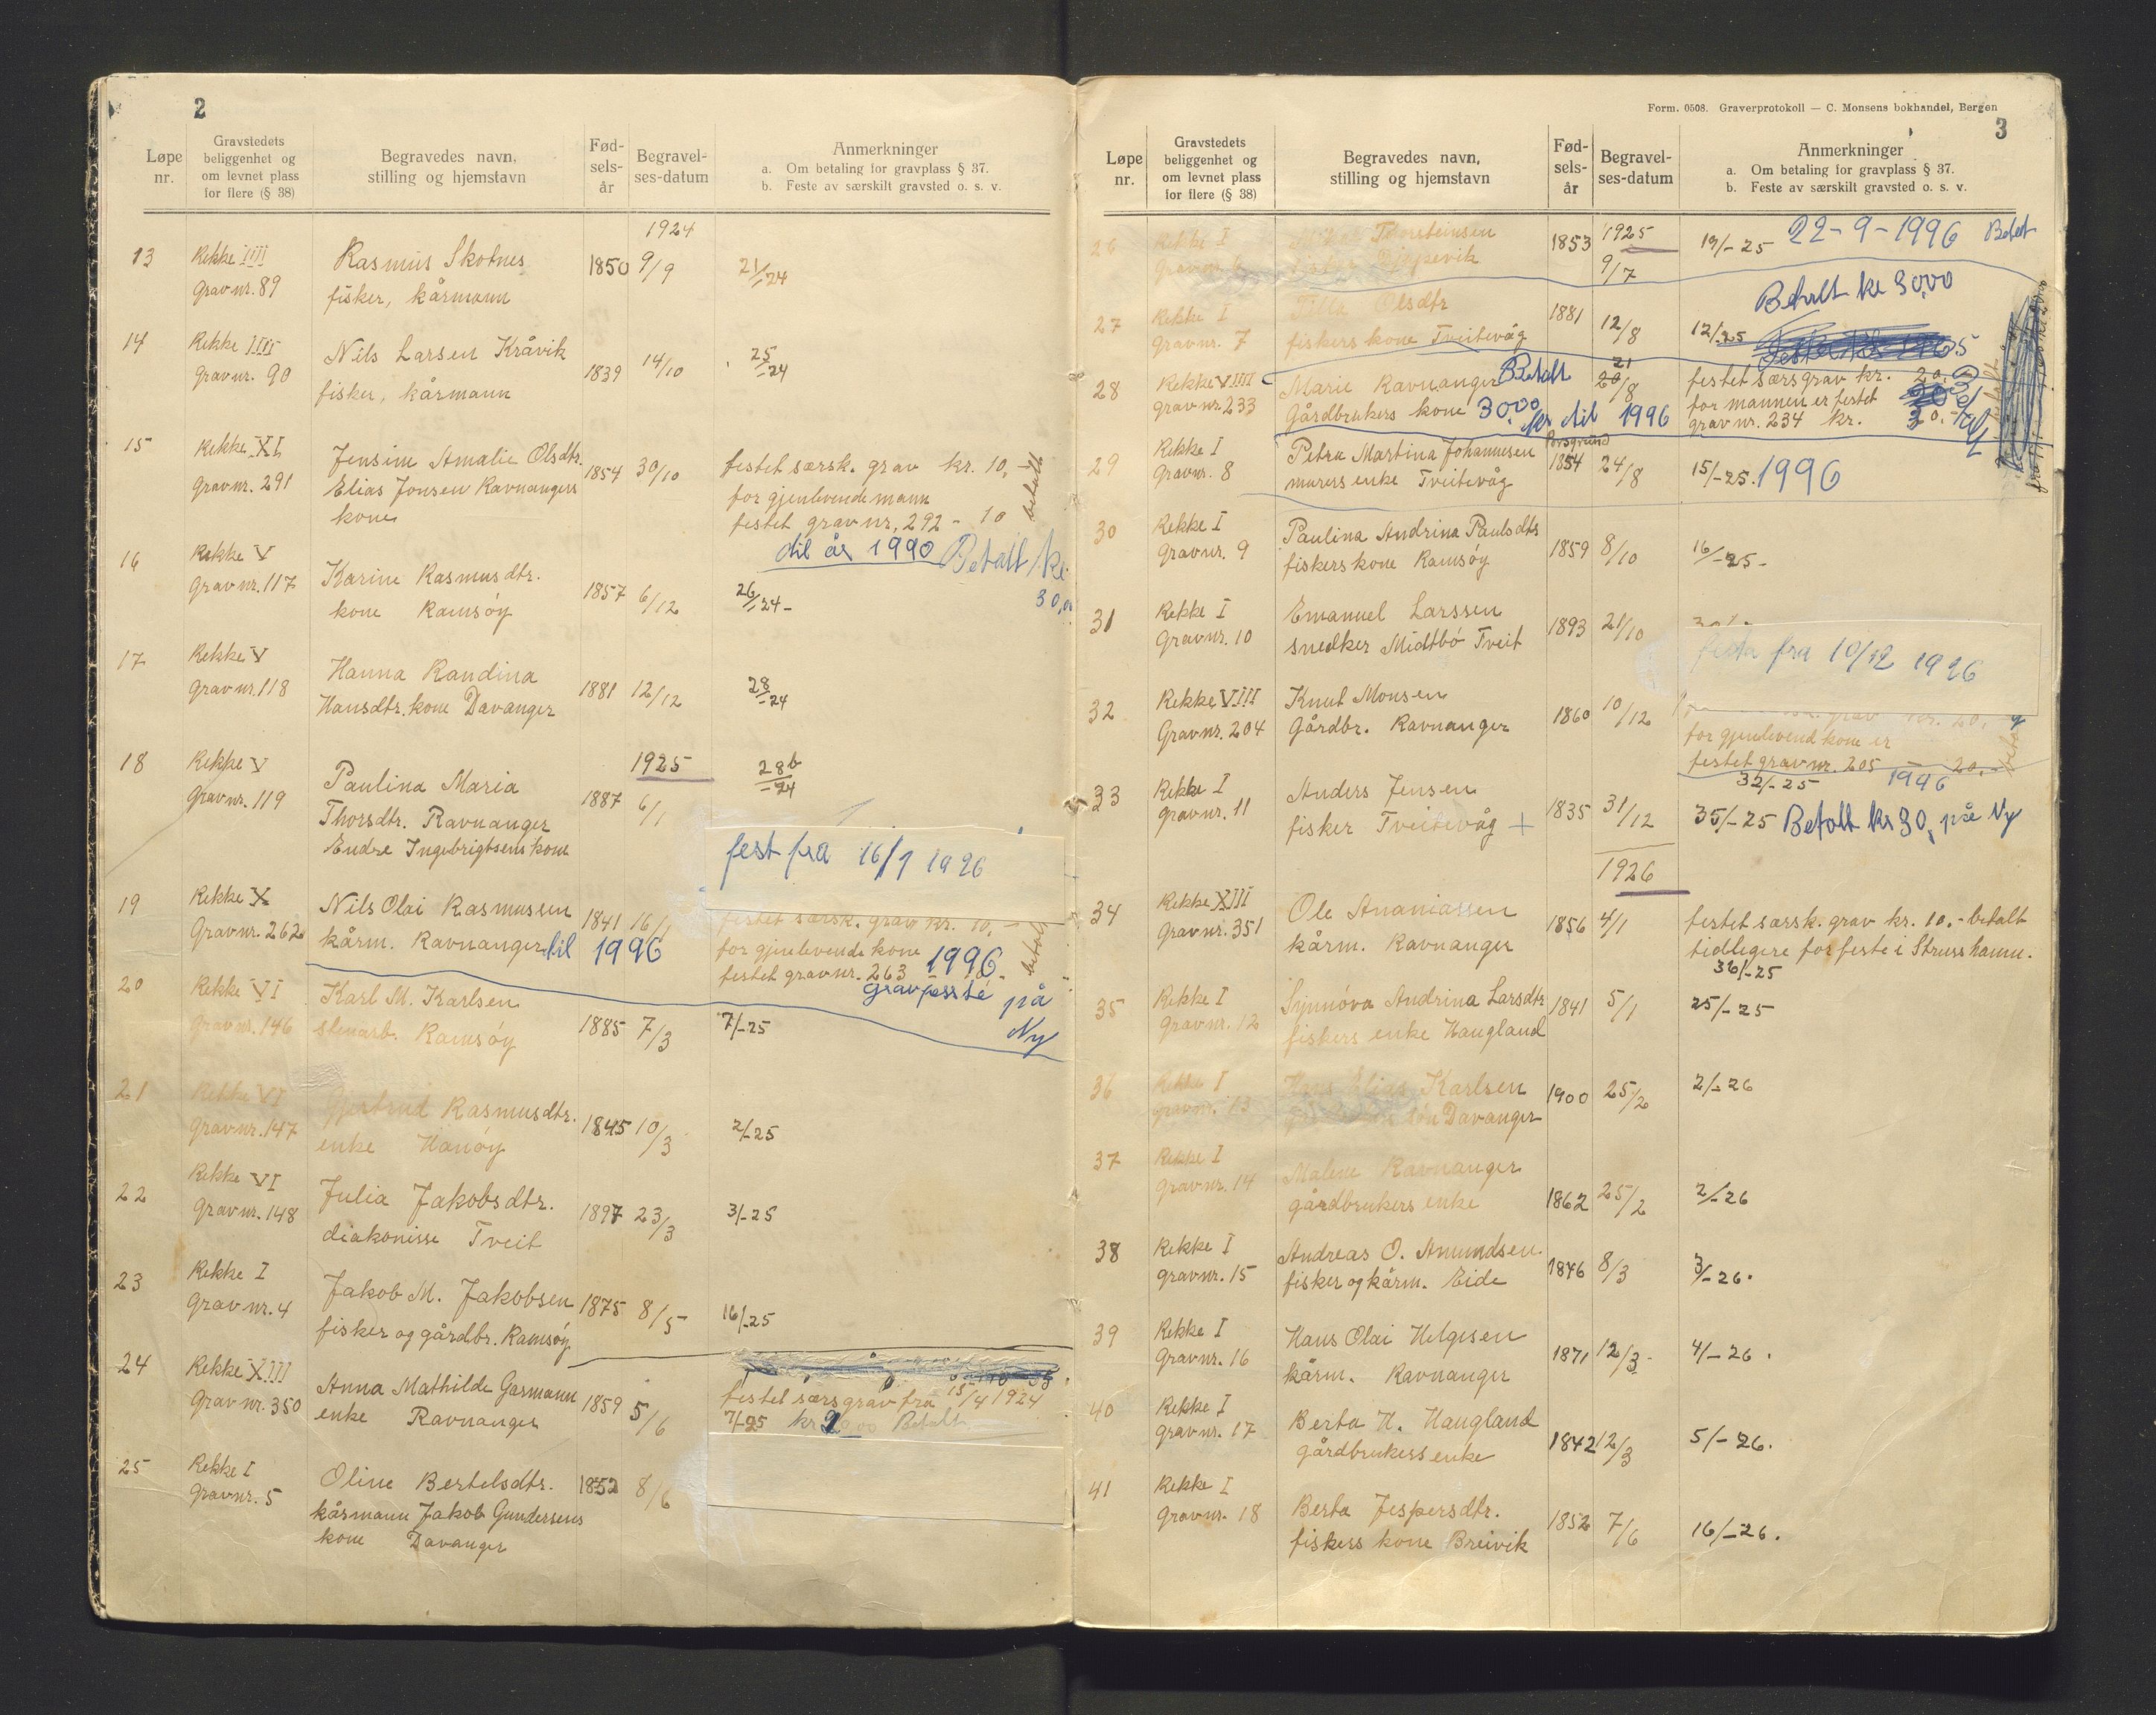 2
Løpe nr.
Gravstedets beliggenhet og om levnet plass for flere (§ 38)
Begravedes navn, stilling og hjemstavn
Fød-sels-år
Begravel-ses-datum
Anmerkninger
a. Om betaling for gravplass § 37.
b. Feste av særskilt gravsted o. s. v.
1924
13 Rekke III Rasmus Skotnes 1850 9/9 21/-24
Gravnr. 89 fisker, kårmann
14 Rekke III Nils Larsen Kråvik 1839 14/10 25/-24
Gravnr. 90 fisker, kårmann
15 Rekke XI Jensine Amalie Olsdtr. 1854 30/10 festet særsk. grav kr. 10,-
Gravnr. 291 Elias Jonsen Ravnangers for gjenlevende mann
kone festet gravnr. 292 - 10
betalt
til år 1990 Betalt kr
30,00
16 Rekke V Karine Rasmusdtr. 1857 6/12 26/-24-
Gravnr. 117 kone Ramsøy
17 Rekke V Hanna Randina 1881 12/12 28/-24
Gravnr. 118 Hansdtr. kone Davanger
1925
18 Rekke V Paulina Maria 1887 6/1 28b/-24
Gravnr. 119 Thorsdtr. Ravnanger
Endre Ingebrigtsens kone
fest fra 16/1 1926
19 Rekke X Nils Olai Rasmussen 1841 16/1 festet særsk. grav kr. 10,-
Gravnr. 262 kårm. Ravnanger til 1996 for gjenlevende kone 1996
festet gravnr. 263
betalt
gravfesste på Ny
20 Rekke VI Karl M. Karlsen 1885 7/3 7/-25
Gravnr. 146 stenarb. Ramsøy
21 Rekke VI Gjertrud Rasmusdtr. 1845 10/3 2/-25
Gravnr. 147 enke Hanøy
22 Rekke VI Julia Jakobsdtr. 1897 23/3 3/-25
Gravnr. 148 diakonisse Tveit
23 Rekke I Jakob M. Jakobsen 1875 8/5 16/-25
Gravnr. 4 fisker og gårdbr. Ramsøy
24 Rekke XIII Anna Mathilde Garmann 1859 5/6 festet særsgrav fra 15/4 1924
Gravnr. 350 enke Ravnanger 7/-25 kr Betalt
25 Rekke I Oline Bertelsdtr. 1852 8/6
Gravnr. 5 kårmann Jakob Gundersens
kone Davanger
Form. 0508. Graverprotokoll — C. Monsens bokhandel, Bergen
3
Løpe nr.
Gravstedets beliggenhet og om levnet plass for flere (§ 38)
Begravedes navn, stilling og hjemstavn
Fød-sels-år
Begravel-ses-datum
Anmerkninger
a. Om betaling for gravplass § 37.
b. Feste av særskilt gravsted o. s. v.
1925
26 Rekke I Thorsteinsen 1853 9/7 19/-25 22-9-1996
Betalt kr 30,00
27 Rekke I Olsdtr 1881 12/8 12/-25
Gravnr. 7 fiskers kone Tveitevåg
28 Rekke VIII Marie Ravnanger Betalt 21/8 festet særsgrav kr. 20,
gravnr. 233 Gårdbrukers kone 30,00 kr til 1996 for mannen er festet
grav nr. 234 kr.
29 Rekke I Petra Martina Johannesen Porsgrund 1854 24/8 15/-25. 1996
Gravnr. 8 murers enke Tveitevåg
30 Rekke I Paulina Andrina Paulsdtr 1859 8/10 16/-25-
Gravnr. 9 fiskers kone Ramsøy
31 Rekke I Emanuel Larssen 1893 21/10
Gravnr. 10 snedker Midtbø Tveit
festa fra 10/12 1926
32 Rekke VIII Knut Monsen 1860 10/12
Gravnr. 204 Gårdbr. Ravnanger
for gjenlevend kone er
festet gravnr. 205 - 20,-
32/-25 1996
33 Rekke I Anders Jensen 1835 31/12 35/-25 Betalt kr 30, på Ny
Gravnr. 11 fisker Tveitevåg +
1926
34 Rekke XIII Ole Ananiassen 1856 4/1 festet særsk. grav kr. 10.- betalt
Gravnr. 351 kårm. Ravnanger tidligere for feste i Strusshamn.
36/-25
35 Rekke I Synnøva Andrina Larsdtr 1841 5/1 25/-25
Gravnr. 12 fiskers enke Haugland
36 Rekke I Hans Elias Karlsen 1900 25/2 2/-26
Gravnr. 13 søn Davanger
37 Rekke I Malene Ravnanger 1862 25/2 2/-26
Gravnr. 14 gårdbrukers enke
38 Rekke I Andreas O. Amundsen 1846 8/3 3/-26.
Gravnr. 15 fisker og kårm. Eide
39 Rekke I Hans Olai Helgesen 1871 12/3 4/-26.
Gravnr. 16 kårm. Ravnanger
40 Rekke I Berta H. Haugland 1842 12/3 5/-26.
Gravnr. 17 gårdbrukers enke
41 Rekke I Berta Jespersdtr. 1852 7/6 16/-26.
Gravnr. 18 fiskers kone Breivik